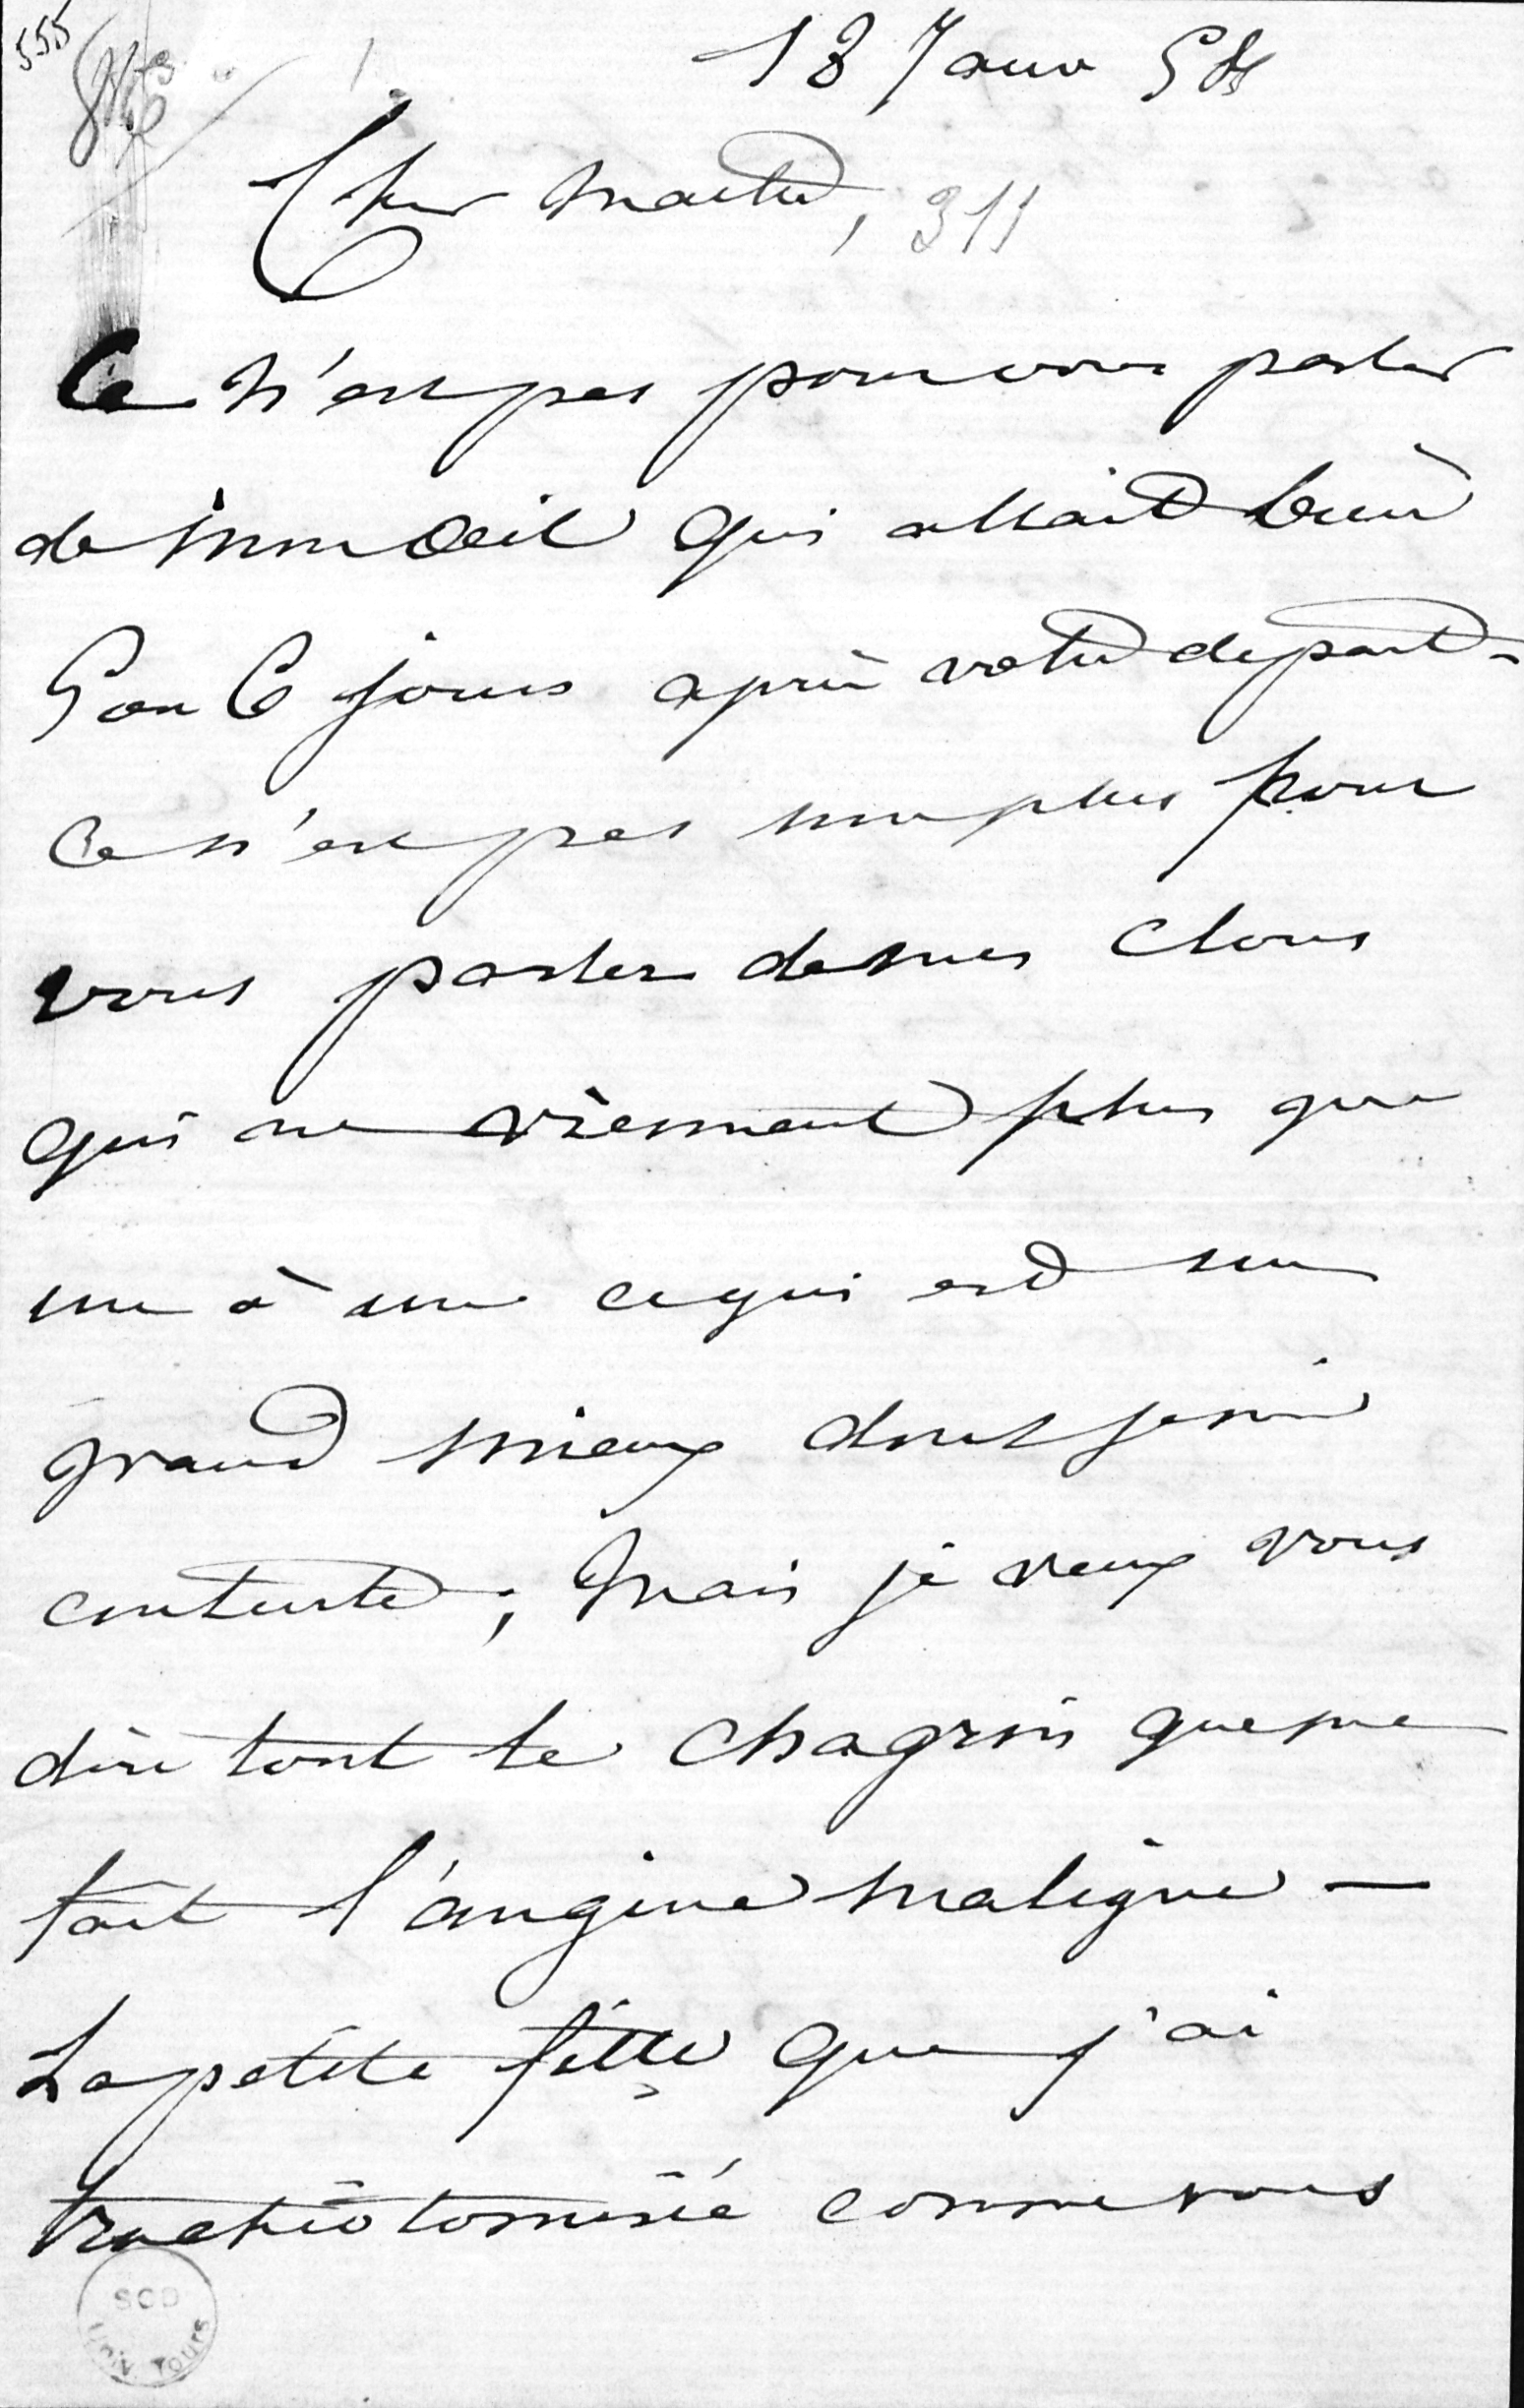 555
18 Janv 58
Cher Maitre, 311
Ce n'est pas pour vous parler
de mon Œil qui allait bien
5 ou 6 jours après votre depart -
Ce n'est pas non plus pour
vous parler de mes clous
qui ne viennent plus que
un à un ce qui est un
grand mieux dont je me
contente ; Mais je veux vous
dire tout le chagrin que me
fait l'angine maligne —
La petite fille que j'ai
trachéotomisée comme vous
SCD
UNIV TOURS